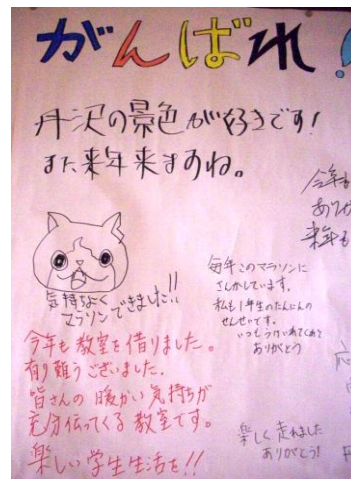 がんばれ!
丹沢の景色が好きです!
また来年来ますね。
今年も
ありが
来年も
気持ちよく
マラソンできました!!
毎年このマラソンに
さんかしています。
私も1年生のたんにんの
せんせいです。
いつもうけいれてくれて
ありがとう
今年も教室を借りました。
有り難うございました.
皆さんの暖かい気持ちが
充分伝ってくる教室です。
楽しい学生生活を!!
楽しく走れました
ありがとう!
応